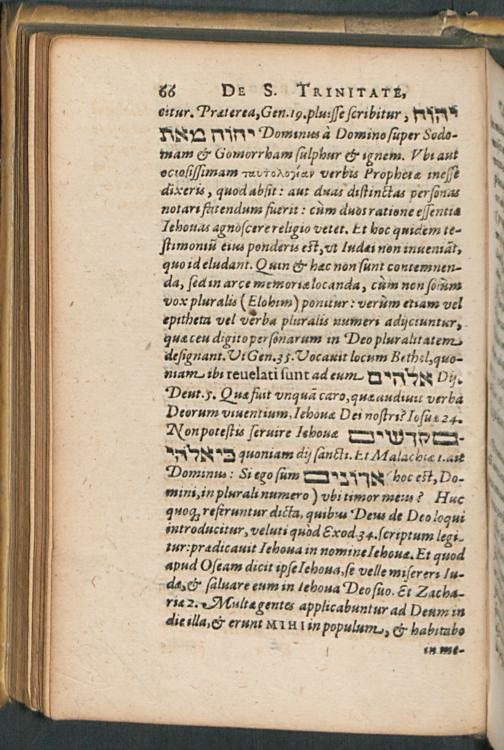 66 DE S. TRINITATE,
citur. Præterea, Gen. 19. pluisse scribitur, יהוה
יהוה מאת Dominus à Domino super Sodo-
mam & Gomorrham sulphur & ignem. Vbi aut
ociosissimam ταυτολογίαν verbis Prophetæ inesse
dixeris, quod absit: aut duas distinctas personas
notari fatendum fuerit: cùm duos ratione essentiæ
Iehouas agnoscere religio vetet. Et hoc quidem te-
stimoniū eius ponderis est, vt Iudæi non inueniāt,
quo id eludant. Quin & hæc non sunt contemnen-
da, sed in arce memoriæ locanda, cùm non solùm
vox pluralis (Elohim) ponitur: verùm etiam vel
epitheta vel verba pluralis numeri adijciuntur,
quæ ceu digito personarum in Deo pluralitatem
designant. Vt Gen. 35. Vocauit locum Bethel, quo-
niam ibi reuelati sunt ad eum אלהים Dij.
Deut. 5. Quæ fuit vnquā caro, quæ audiuit verba
Deorum viuentium, Iehouæ Dei nostri? Iosuæ 24.
Non potestis seruire Iehouæ ־ים קדשים
כי אלהי quoniam dij sancti. Et Malachiæ 1. ait
Dominus: Si ego sum אדונים hoc est, Do-
mini, in plurali numero) vbi timor meus? Huc
quoq; referuntur dicta, quibus Deus de Deo loqui
introducitur, veluti quòd Exod. 34. scriptum legi-
tur: prædicauit Iehoua in nomine Iehouæ. Et quod
apud Oseam dicit ipse Iehoua, se velle misereri Iu-
dæ, & saluare eum in Iehoua Deo suo. Et Zacha-
riæ 2. Multæ gentes applicabuntur ad Deum in
die illa, & erunt MIHI in populum, & habitabo
in me-